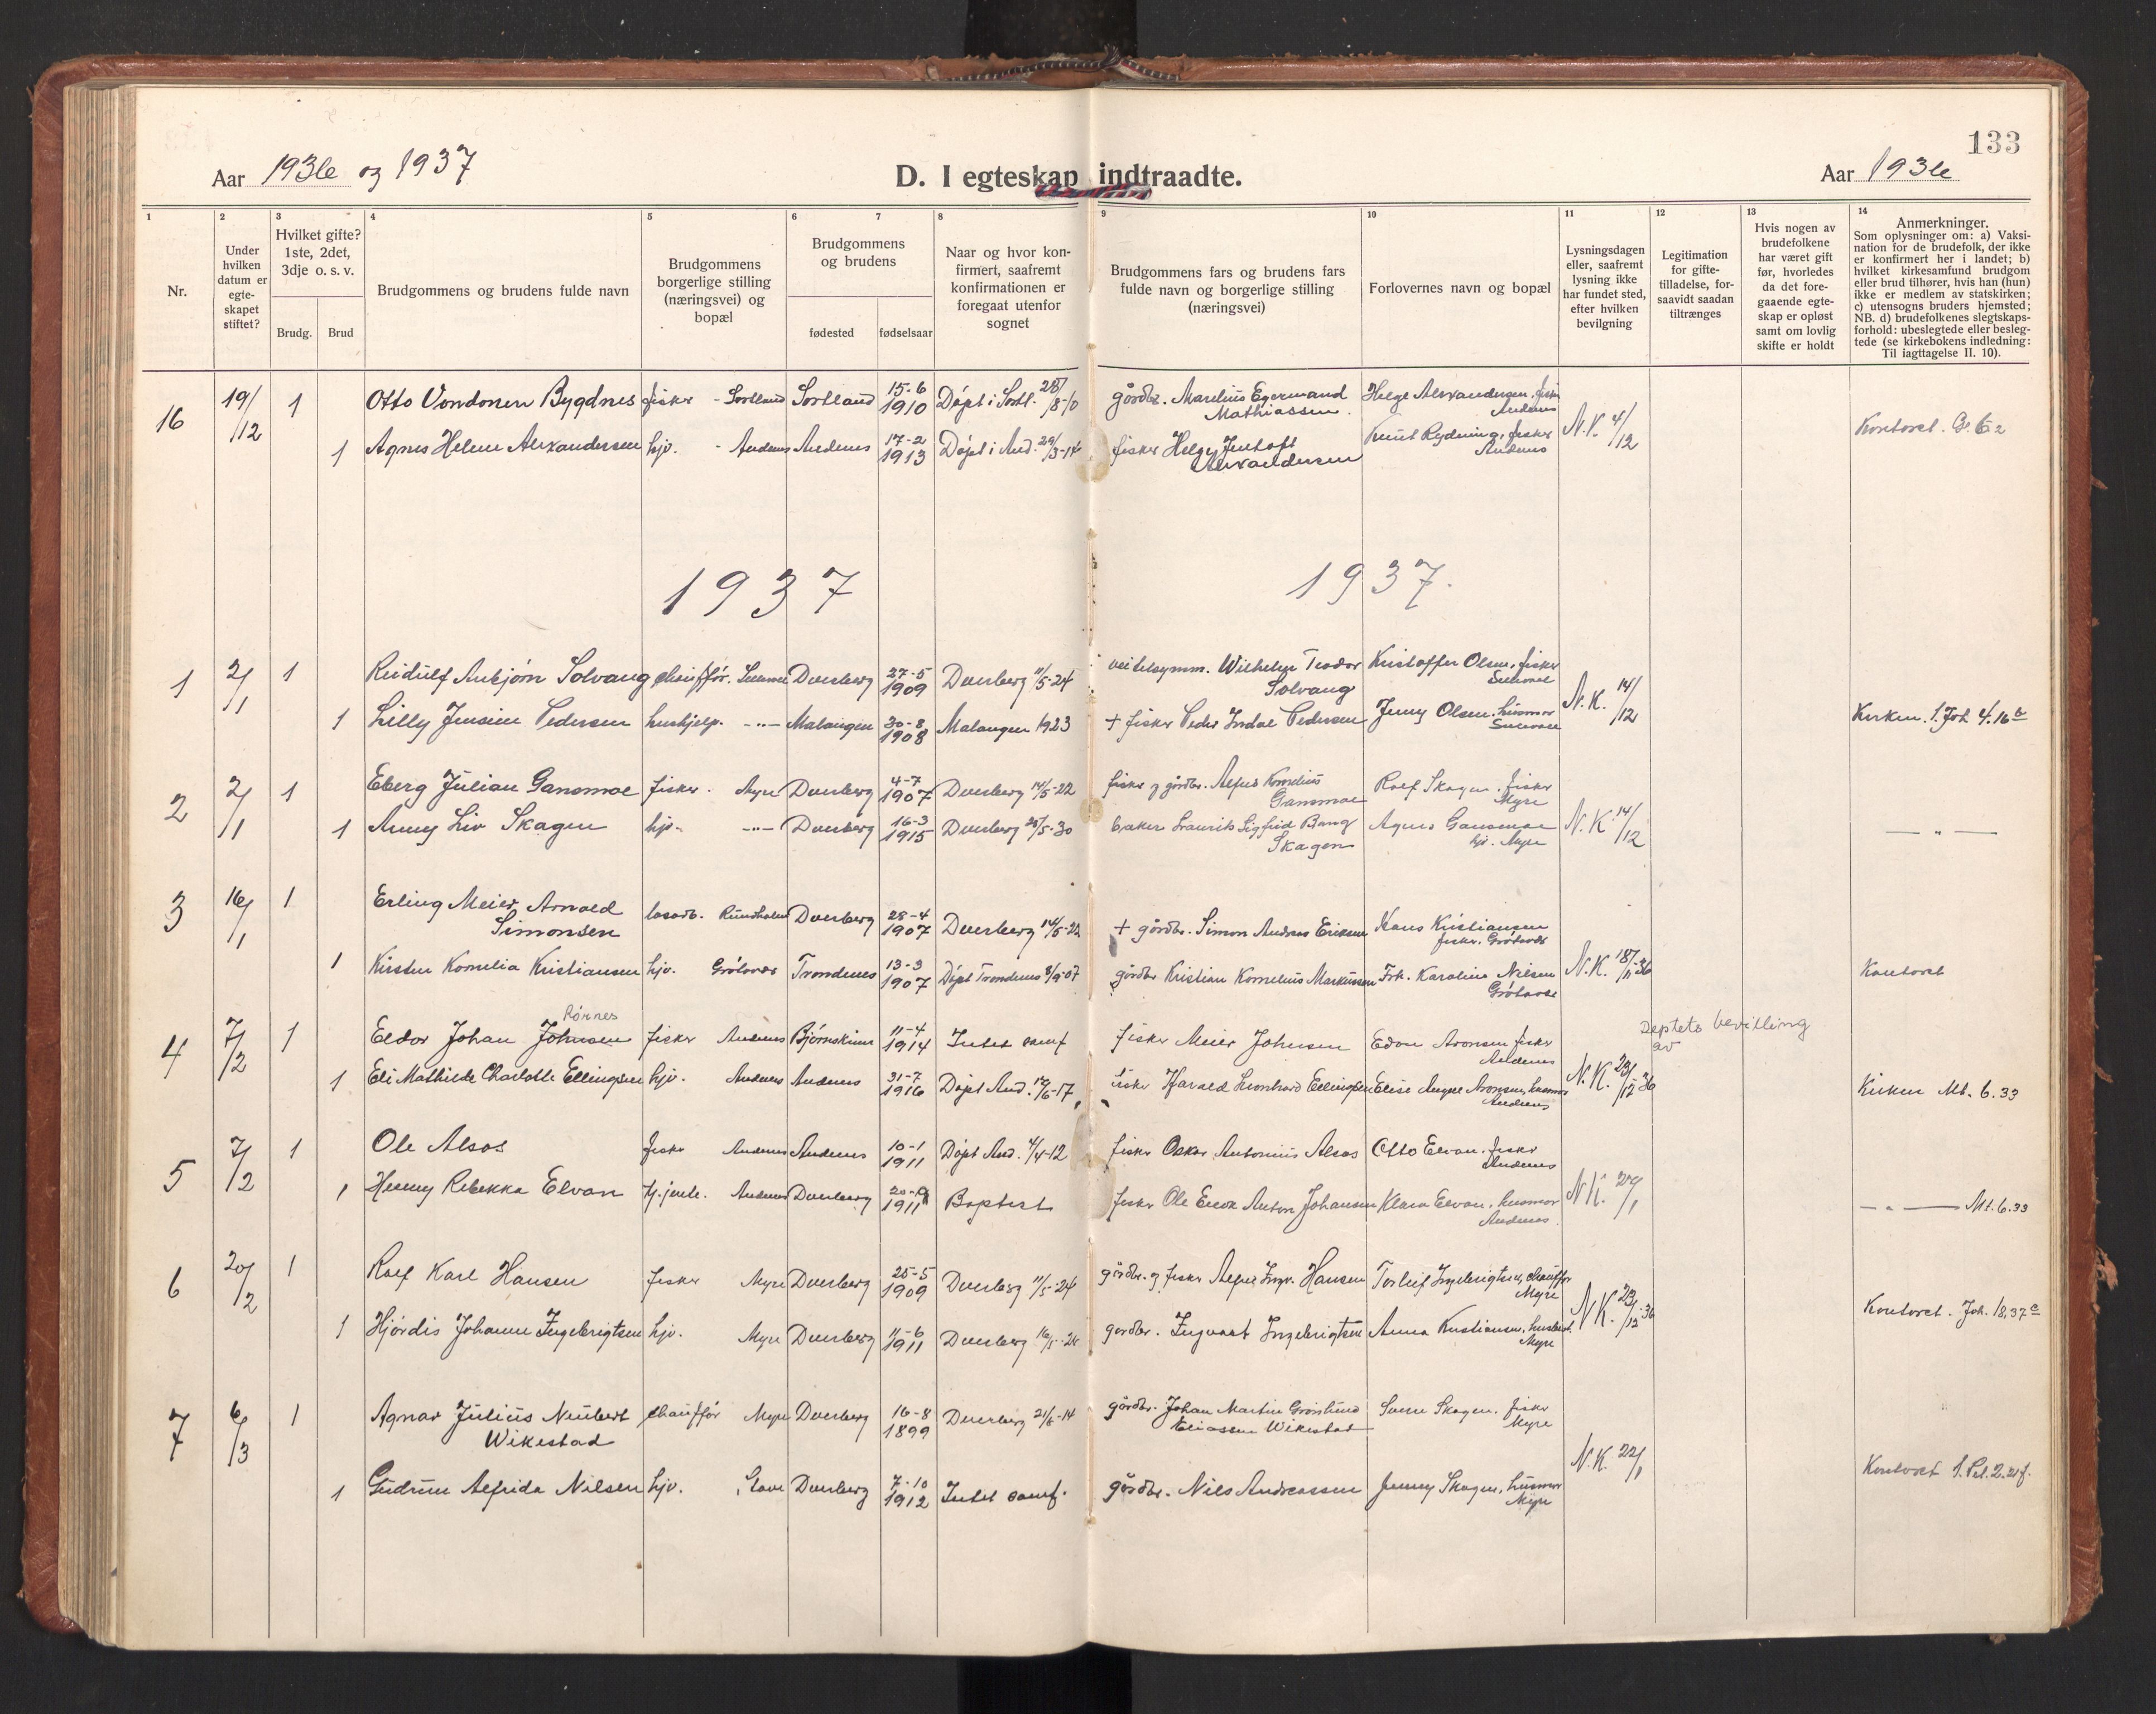 133
Aar 1936 og 1937
D. I egteskap indtraadte.
Aar 1936
1 2 3 4 5 6 7 8 9 10 11 12 13 14
Nr.
Under hvilken datum er egte-skapet stiftet?
Hvilket gifte? 1ste, 2det, 3dje o. s. v.
Brudg. Brud
Brudgommens og brudens fulde navn
Brudgommens borgerlige stilling (næringsvei) og bopæl
Brudgommens og brudens
fødested fødselsaar
Naar og hvor kon-firmert, saafremt konfirmationen er foregaat utenfor sognet
Brudgommens fars og brudens fars fulde navn og borgerlige stilling (næringsvei)
Forlovernes navn og bopæl
Lysningsdagen eller, saafremt lysning ikke har fundet sted, efter hvilken bevilgning
Legitimation for gifte-tilladelse, for-saavidt saadan tiltrænges
Hvis nogen av brudefolkene har været gift før, hvorledes da det fore-gaaende egte-skap er opløst samt om lovlig skifte er holdt
Anmerkninger.
Som oplysninger om: a) Vaksi-nation for de brudefolk, der ikke er konfirmert her i landet; b) hvilket kirkesamfund brudgom eller brud tilhører, hvis han (hun) ikke er medlem av statskirken; c) utensogns bruders hjemsted; NB. d) brudefolkenes slegtskaps-forhold: ubeslegtede eller besleg-tede (se kirkebokens indledning: Til iagttagelse II. 10).
16 19/12 1 Otto Vondonen Bygdnes fisker - Sortland Sortland 15-6 1910 Døpt i Sortl. 28/8-10 gårdbr. Marelius Egermand Mathiassen. Helge Alexandersen, fisker Andenes
1 Agnes Helene Alexandersen hjv. - Andenes Andenes 17-2 1913 Døpt i And. 29/3-14 fisker Helge Jentoft Alexandersen Knut Rydning, fisker Andenes N.K. 4/12 Kontoret. G. 6 2
1937 1937.
1 2/1 1 Reidulf Anbjørn Solvang chauffør. Dverberg 27-5 1909 Dverberg 11/5-24 Wilhelm Teodor Solvang Kristoffer Olsen, fisker
1 Lilly Jensine Pedersen hushjelp. -"- Malangen 30-8 1908 Malangen 1923 + fisker Peder Indal Pedersen Jenny Olsen. husmor N.K. 14/12 Kirken. 1. Joh 4.16 b
2 2/1 1 Eberg Julian Gansmoe fisker. Myre Dverberg 4-7 1907 Dverberg 14/5-22 fisker og gårdbr. Alfred Kornelius Gansmoe Rolf Skagen. fisker Myre
1 Anny Liv Skagen hjv. -"- Dverberg 16-3 1915 Dverberg 25/5-30 baker Laurits Sigfrid Bang Skagen Agnes Gansmoe hjv. Myre N.K. 14/12 — " —
3 16/1 1 Erling Meier Arnold Simonsen Dverberg 28-4 1907 Dverberg 14/5-22 + gårdbr. Simon Andreas Eriksen Hans Kristiansen fisker. Grøtavær
1 Kirsten Kornelia Kristiansen hjv. Grøtavær Trondenes 13-3 1907 Døpt Trondenes 8/9-07 gårdbr Kristian Kornelius Markussen Frk. Karoline Nilsen Grøtavær N.K. 18/11-36 Kontoret
4 7/2 1 Eldor Johan Johnsen Rörnes fisker Andenes Bjørnskinn 11-4 1914 Intet samf fisker Meier Johnsen Edon Aronsen fisker Andenes
Deptets bevilling av
1 Eli Mathilde Charlotte Ellingsen hjv. Andenes Andenes 31-7 1916 Døpt And. 17/6-17 fisker Harald Leonhard Ellingsen Elise Aronsen, husmor Andenes N.K. 23/12 36 Kirken Mt. 6.33
5 7/2 1 Ole Alsos fisker Andenes Andenes 10-1 1911 Døpt And. 4/4-12 fisker Oskar Antonius Alsos Otto Elvan. fisker Andenes
1 Henny Rebekka Elvan tj.jente. Andenes Dverberg 1911 Baptist fisker Ole Anton Johansen Klara Elvan, husmor Andenes. N.K. 2/1 — " — Mt. 6.33
6 20/2 1 Rolf Karl Hansen fisker Myre Dverberg 25-5 1909 Dverberg 11/5-24 gårdbr. og fisker Alfred Ingv. Hansen Torleif Ingebrigtsen, chauffør Myre
1 Hjördis Johanne Ingebrigtsen hjv. Myre Dverberg 11-6 1911 Dverberg gårdbr. Ingvart Ingebrigtsen Anna Kristiansen, Myre N.K. 23/12-36 Kontoret. Joh. 18,37 c
7 6/3 1 Agnar Julius Neubert Wikestad chauffør Myre Dverberg 16-8 1899 Dverberg 21/6-14 gårdbr. Johan Martin Grønlund Eliassen Wikestad Skagen. fisker Myre
1 Gudrun Alfrida Nilsen hjv. Stave Dverberg 7-10 1912 Intet samf. gårdbr. Nils Andreassen Jenny Skagen, husmor Myre N.K. 22/1 Kontoret 1. Pet. 2.21f.